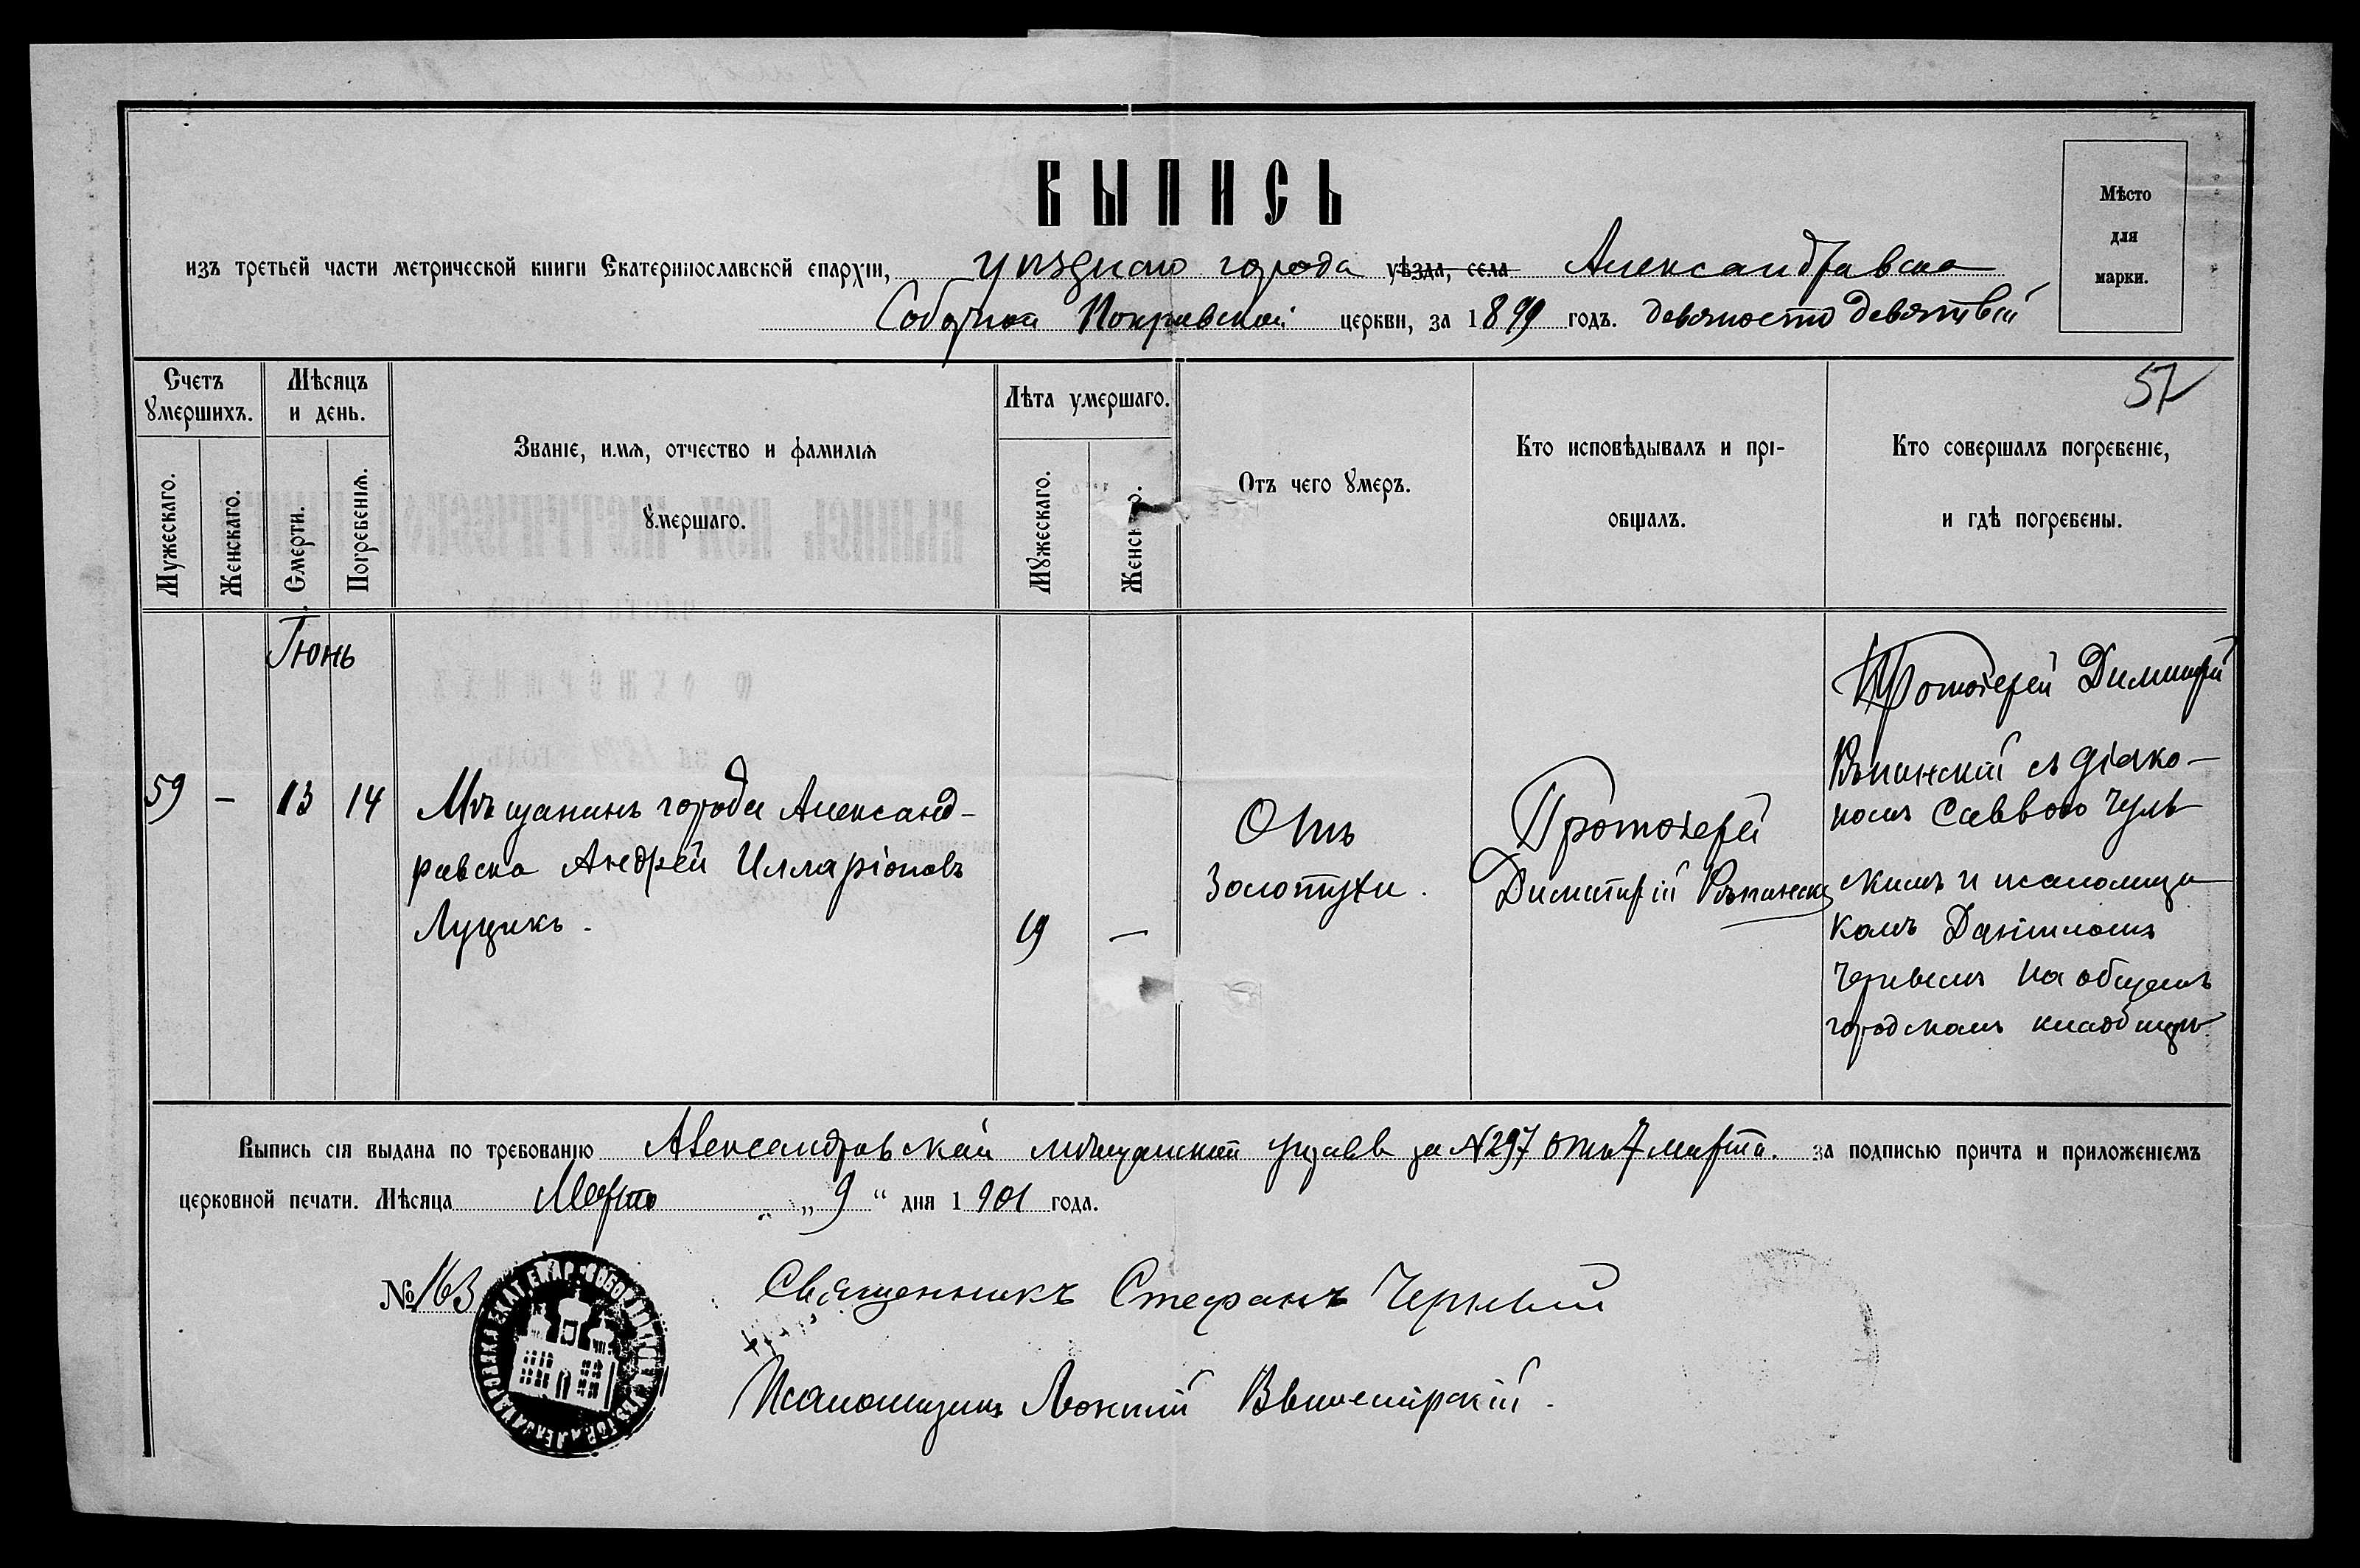 ВЫПИСЬ
Мѣсто
для
марки.
изъ третьей части метрической книги Екатеринославской епархіи, уѣзднаго города уѣзда, села Александровска
Соборной Покровской церкви, за 1899 годъ. девяносто девятый
57
Счетъ
умершихъ.
Мужескаго.
Женскаго.
Мѣсяцъ
и день.
Смерти.
Погребенія.
Званіе, имя, отчество и фамилія
умершаго.
Лѣта умершаго.
Мужескаго.
Женск
Отъ чего умеръ.
Кто исповѣдывалъ и прі-
общалъ.
Кто совершалъ погребеніе,
и гдѣ погребены.
Іюнь
59
—
13
14
Мѣщанинъ города Александ-
ровска Андрей Илларіоновъ
Луцикъ.
19
—
Отъ
золотухи.
Протоіерей
Димитрій Рѣпинскій
Протоіерей Димитрій
Рѣпинскій съ діако-
номъ Саввою Чуль-
скимъ и псаломщи-
комъ Даніиломъ
на общемъ
городскомъ кладбищѣ
Выпись сія выдана по требованію Александровской мѣщанской управы за №297 отъ 7 марта. за подписью причта и приложеніемъ
церковной печати. Мѣсяца Марта „9“ дня 1901 года.
№ 163
Священникъ Стефанъ Черный
Псаломщикъ Леонтій